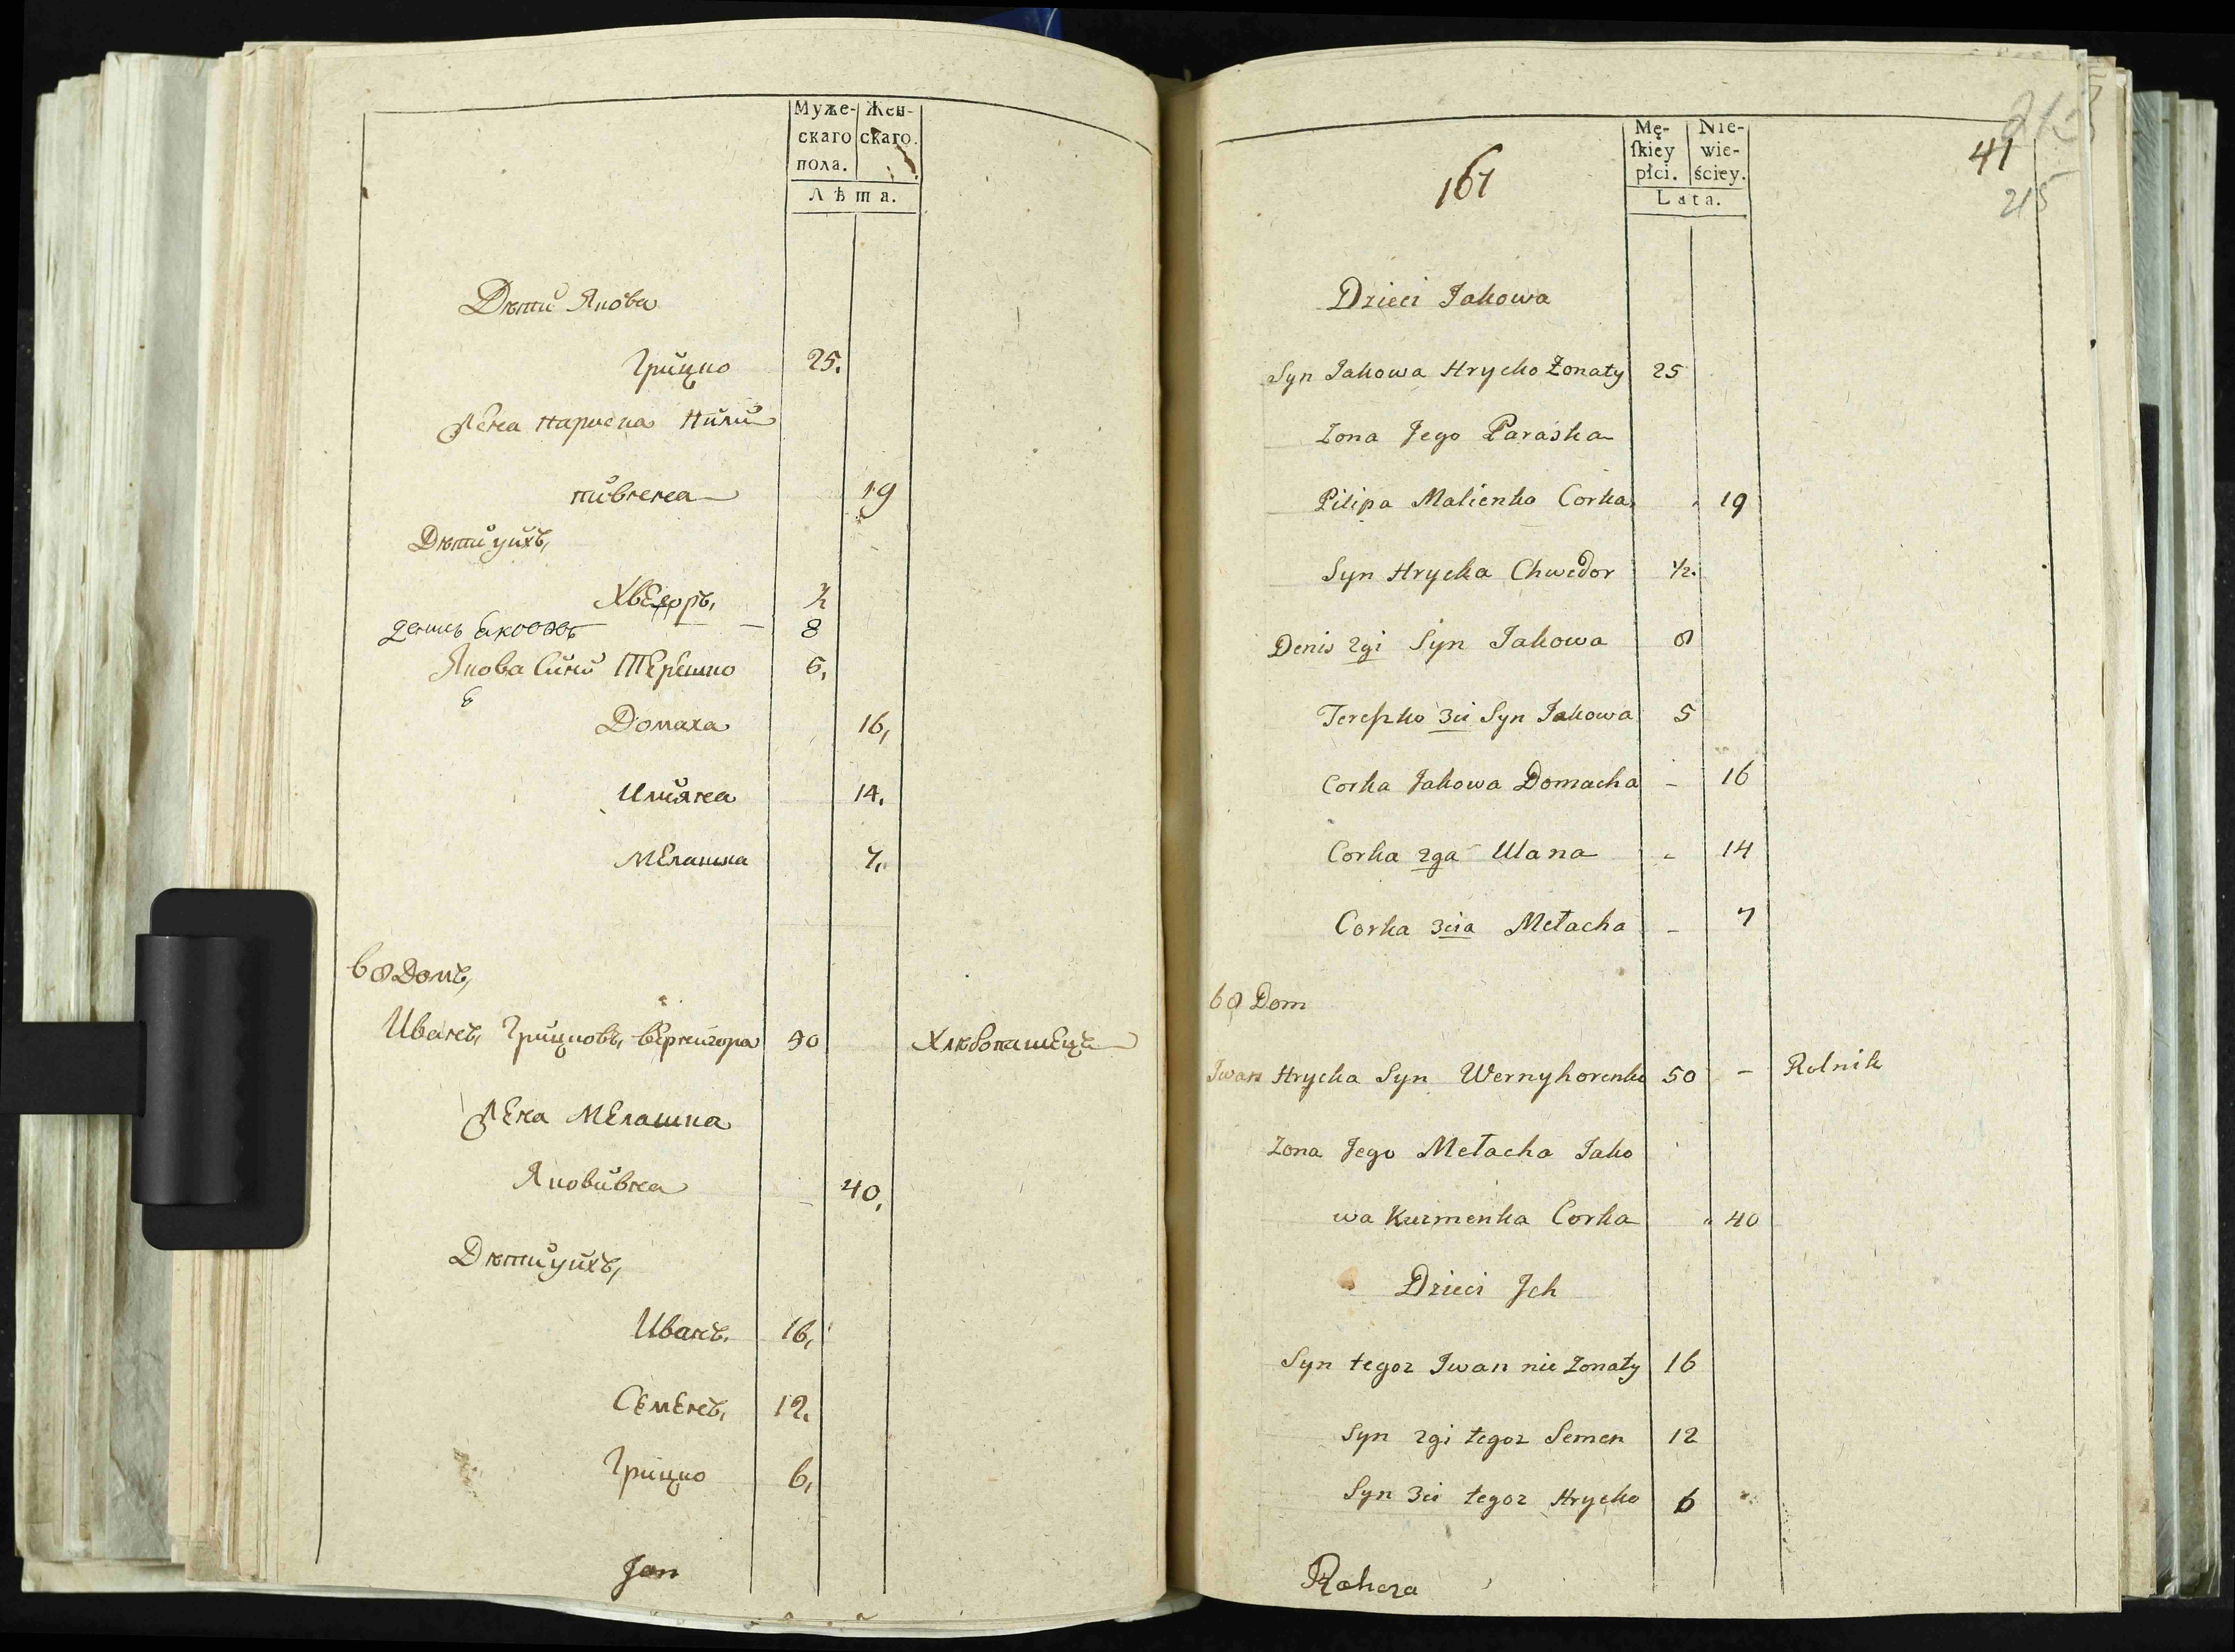 Муже- Жен-
скаго скаго.
пола.
Лѣта.
Дѣти Якова
Грицко 25.
Жена Параска Пили
пивнена 19
Дѣти ихъ,
Хведоръ, ½
денисъ Яковов 8
Якова Сини Терешко 5,
Домаха 16,
Уляна 14.
Мелашка 7.
68 Домъ,
Иванъ, Грицковъ, Вернигора 50 Хлебопашецъ
Жена Мелашка
Яковивна 40,
Дѣти ихъ,
Иванъ. 16,
Семенъ, 12.
Грицко 6,
Jan
161
Mę- Nie-
ſkiey wie-
płci. ściey.
Lata.
41
215
Dzieci Jakowa
Syn Jakowa Hrycko Żonaty 25
Żona Jego Paraska
Pilipa Malienka Corka 19
Syn Hrycka Chwedor ½.
Denis 2gi Syn Jakowa 8
Tereszko 3ci Syn Jakowa 5
Corka Jakowa Domacha - 16
Corka 2ga Ulana - 14
Corka 3cia Metacha - 7
68 Dom
Iwan Hrycka Syn Wernyhorenko 50 - Rolnik
Zona Jego Metacha Jako
wa Kuzmenka Corka 40
Dzieci Jch
Syn tegoz Iwan nie Zonaty 16
Syn 2gi tegoz Semen 12
Syn 3ci tegoz Hrycko 6
Rohoza